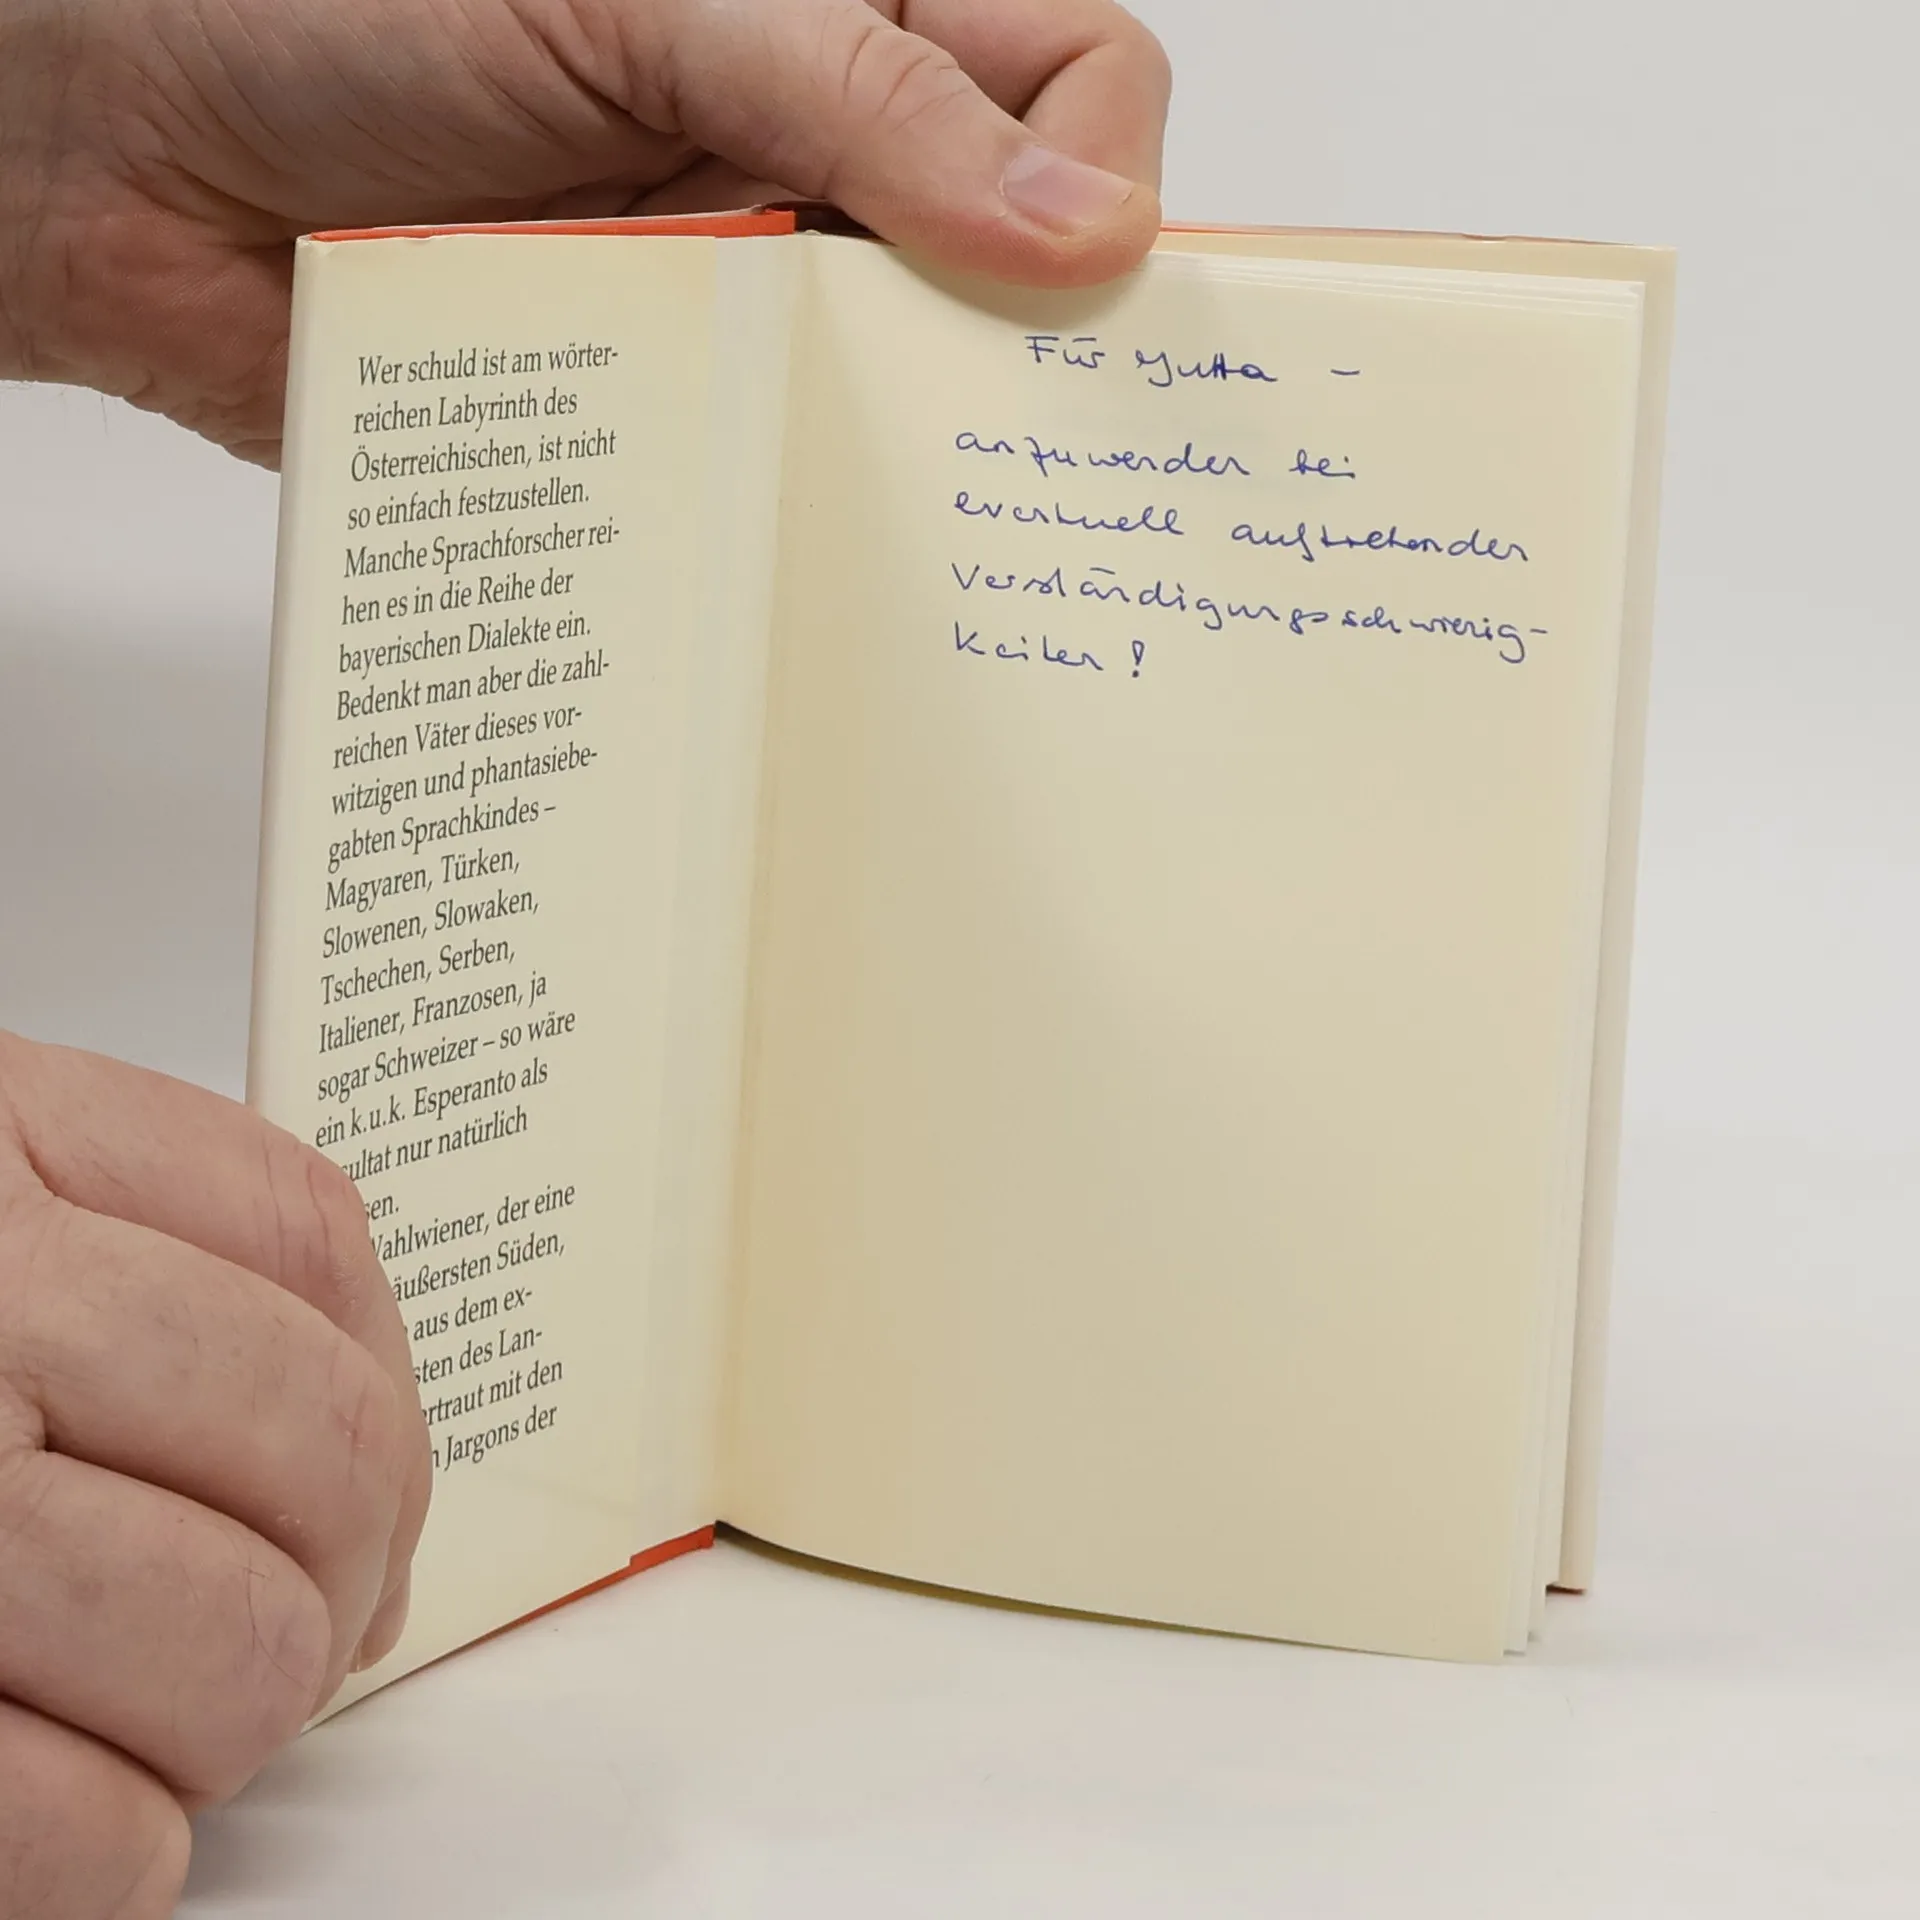 Wer schuld ist am wörter-
reichen Labyrinth des
Österreichischen, ist nicht
so einfach festzustellen.
Manche Sprachforscher rei-
hen es in die Reihe der
bayerischen Dialekte ein.
Bedenkt man aber die zahl-
reichen Väter dieses vor-
witzigen und phantasiebe-
gabten Sprachkindes –
Magyaren, Türken,
Slowenen, Slowaken,
Tschechen, Serben,
Italiener, Franzosen, ja
sogar Schweizer – so wäre
ein k.u.k. Esperanto als
sultat nur natürlich
sen.
Wahlwiener, der eine
äußersten Süden,
aus dem ex-
sten des Lan-
ertraut mit den
n Jargons der
Für Jutta –
anzuwenden bei
eventuell auftretenden
Verständigungsschwierig-
keiten!